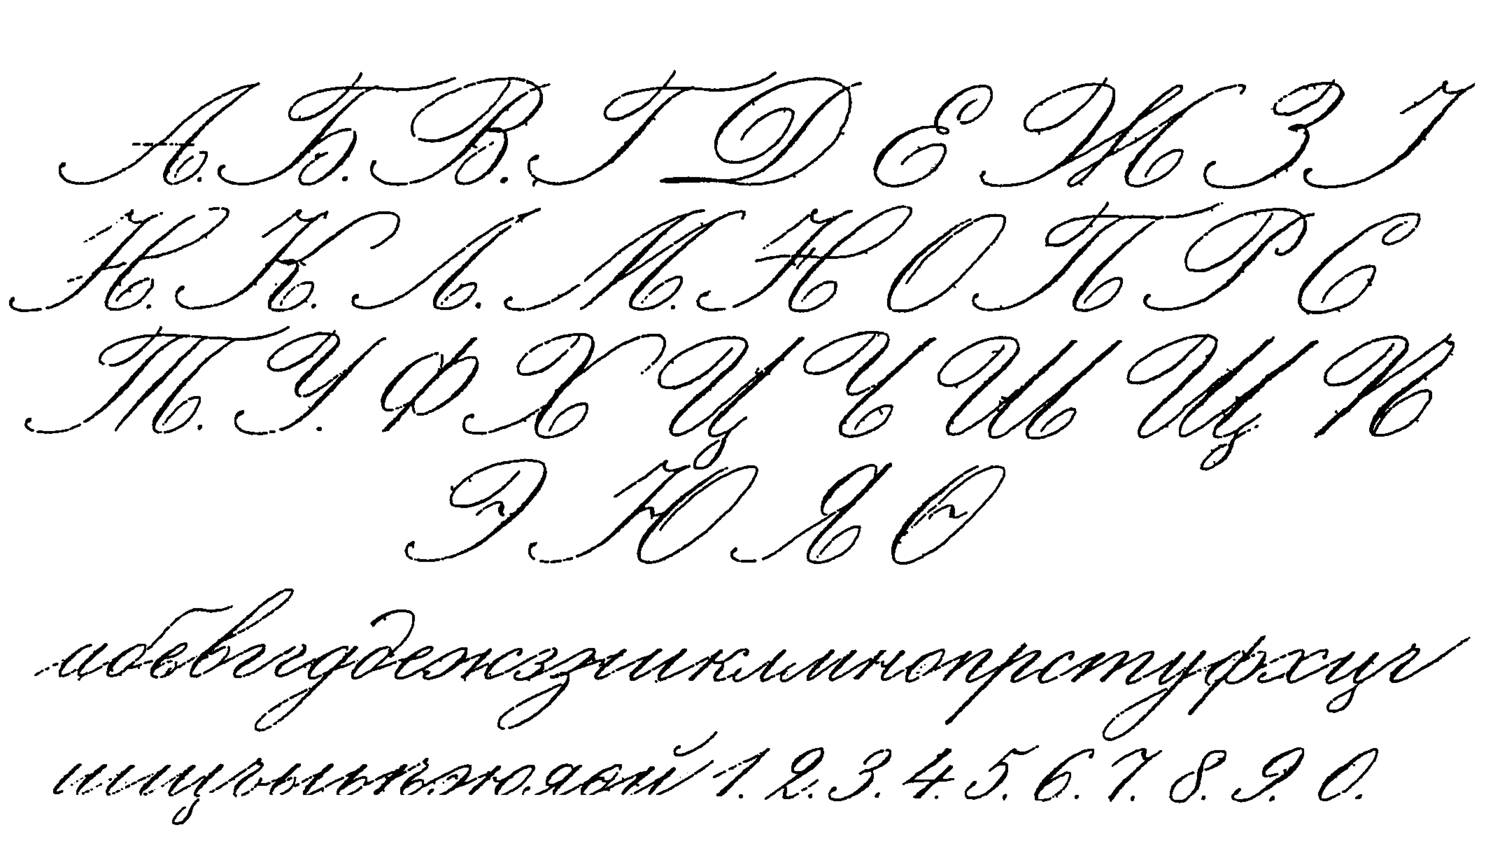 А. Б. В. Г Д Е Ж З І
И. К. Л. М. Н О П. Р С
Т. У. Ф Х Ц Ч Ш Щ И
Э Ю Я Ѳ
абвггддежззиклмнопрстуфхцч
шщъыьѣэюяѳй 1. 2. 3. 4. 5. 6. 7. 8. 9. 0.